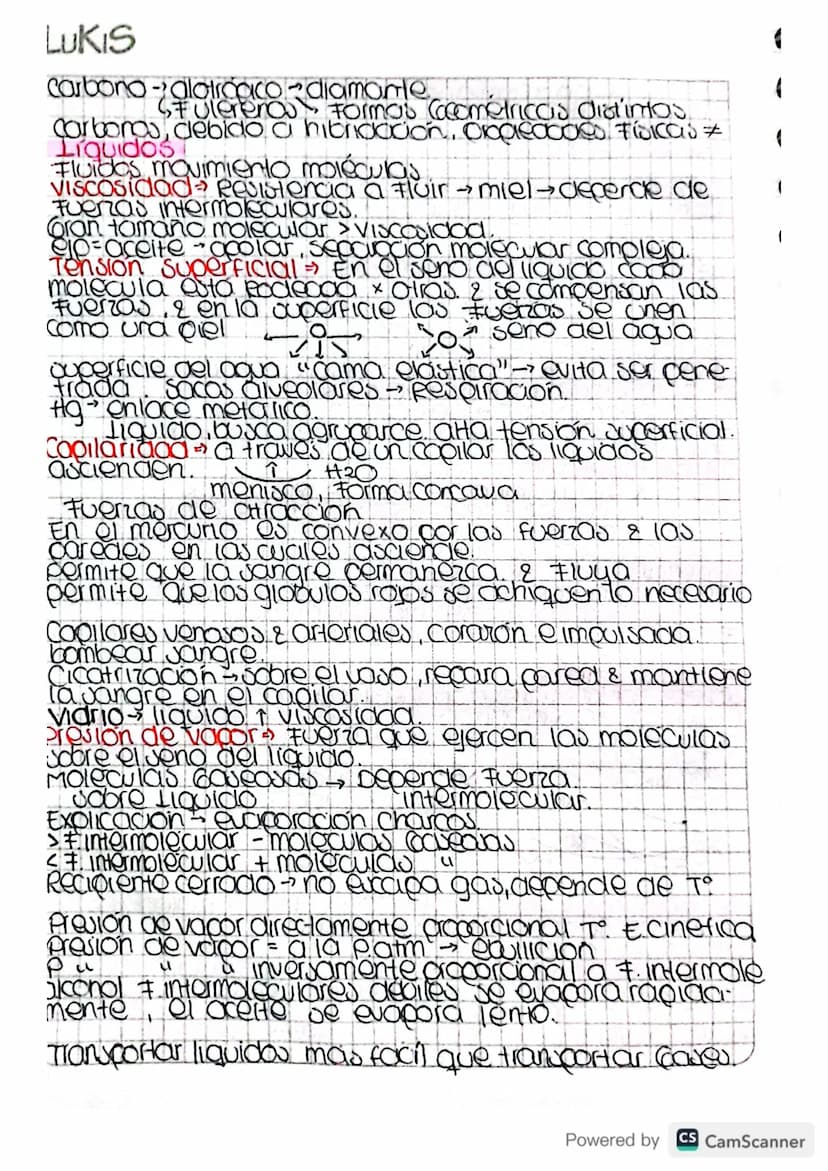 LUKIS
carbono → alotrópico → diamante
↳ Fulerenos ↘ Formas Geométricas distintas
carbonos, debido a hibridación, propiedades físicas ≠
Líquidos
Fluidos, movimiento moléculas
Viscosidad ⇒ Resistencia a Fluir → miel → depende de
Fuerzas intermoleculares.
Gran tamaño molecular > viscosidad.
ejp = aceite → apolar, separación molecular compleja.
Tensión superficial ⇒ En el seno del líquido cada
molécula está rodeada x otras & se compensan las
fuerzas, & en la superficie las fuerzas se unen
como una piel seno del agua
superficie del agua "cama elástica" → evita ser pene-
trada. Sacos alveolares → Respiración.
Hg → enlace metálico.
Líquido, busca agruparce, alta tensión superficial.
Capilaridad ⇒ a través de un capilar los líquidos
ascienden. ↑ H2O
menisco, forma concava
Fuerzas de atracción
En el mercurio es convexo por las fuerzas & las
paredes en las cuales asciende.
permite que la sangre permanezca & fluya
permite que los glóbulos rojos se achiquen lo necesario
Capilares venosos & arteriales, corazón e impulsada.
bombear sangre.
Cicatrización → sobre el vaso, repara pared & mantiene
la sangre en el capilar.
Vidrio → líquido ↑ viscosidad.
Presión de vapor ⇒ Fuerza que ejercen las moléculas
sobre el seno del líquido.
Moléculas Gaseosas → Depende fuerza
sobre Líquido intermolecular.
Explicación → evaporación charcos
> F. intermolecular - moléculas gaseosas
< F. intermolecular + moléculas "
Recipiente cerrado → no escapa gas, depende de T°
Presión de vapor directamente proporcional T°. E. cinética
presión de vapor = a la P. atm → ebullición
P " " " inversamente proporcional a F. intermole
alcohol F intermoleculares débiles se evapora rápida-
mente, el aceite se evapora lento.
Transportar líquidos más fácil que transportar Gases.
Powered by CS CamScanner